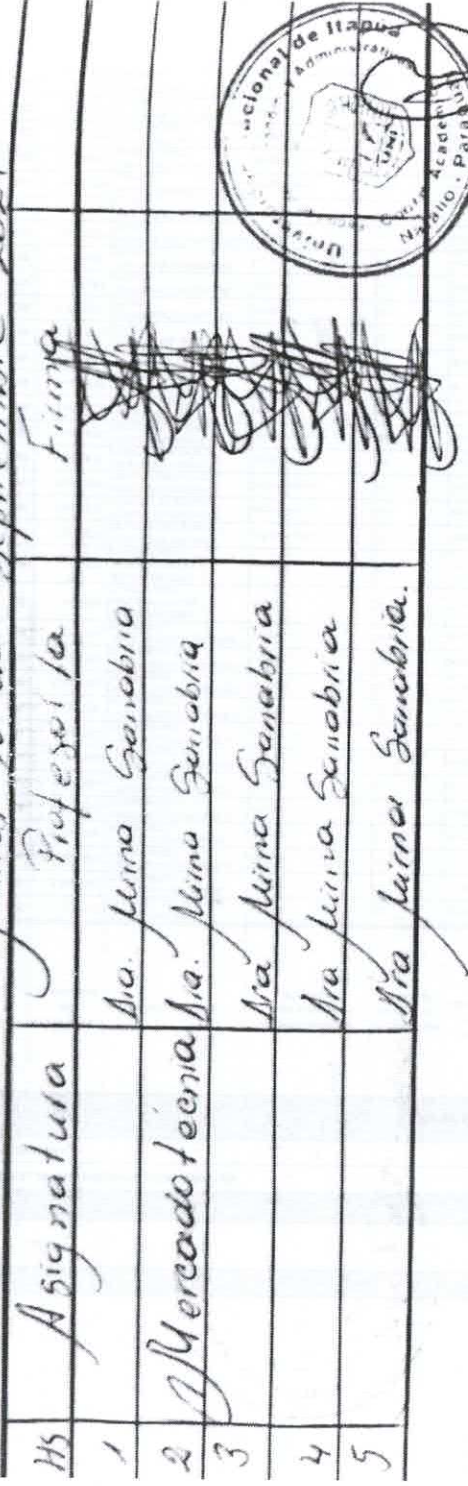 septiembre 2021
Hs Asignatura Profesor/a Firma
1 Dra. Mirna Sanabria
2 Mercadotecnia Dra. Mirna Sanabria
3 Dra Mirna Sanabria
4 Dra Mirna Sanabria
5 Dra Mirna Sanabria.
Univer cional de Itapúa
y Administrativas
UNI
Academ
Natalio - Parag